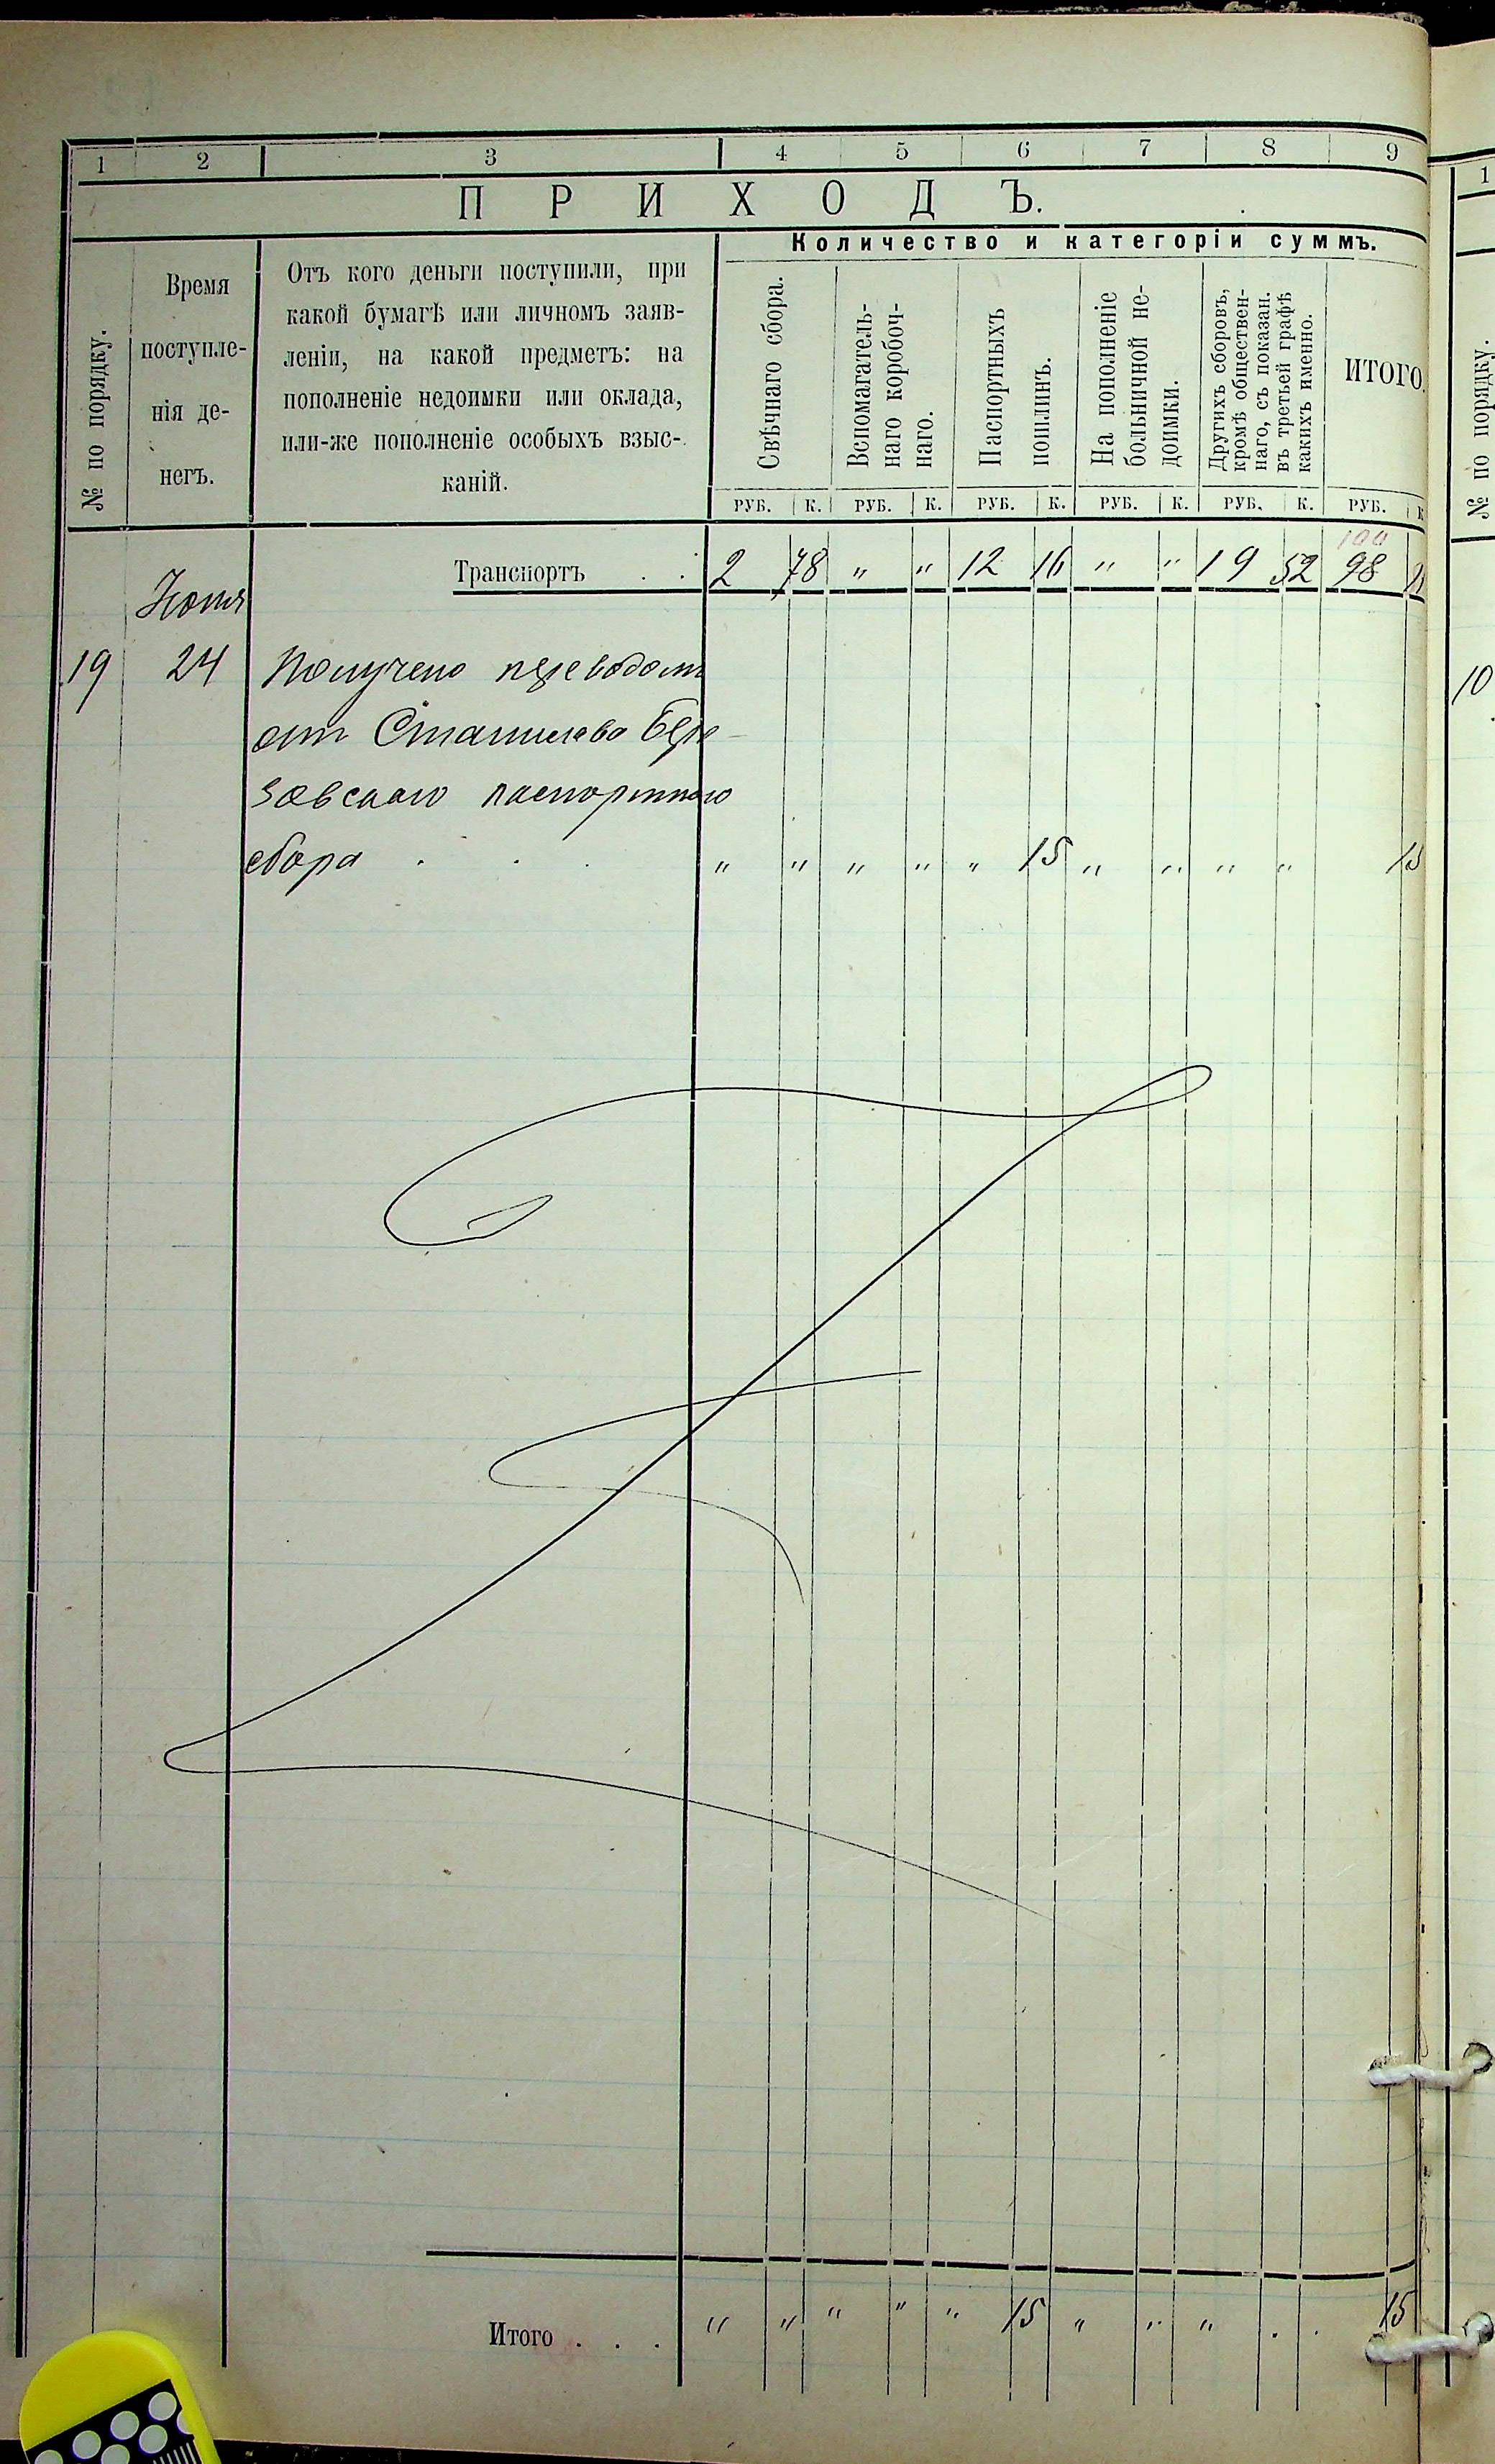 1 2 3 4 5 6 7 8 9
ПРИХОДЪ.
Количество и категоріи суммъ.
№ по порядку.
Время
поступле-
нія де-
негъ.
Отъ кого деньги поступили, при
какой бумагѣ или личномъ заяв-
леніи, на какой предметъ: на
пополненіе недоимки или оклада,
или-же пополненіе особыхъ взыс-
каній.
Свѣчнаго сбора.
Вспомагатель-
наго коробоч-
наго.
Паспортныхъ
пошлинъ.
На пополненіе
больничной не-
доимки.
Другихъ сборовъ,
кромѣ обществен-
наго, съ показан.
въ третьей графѣ
какихъ именно.
ИТОГО.
РУБ. К. РУБ. К. РУБ. К. РУБ. К. РУБ. К. РУБ. К
100
Транспортъ . . 2 78 " " 12 16 " " 19 52 98
Іюня
19 24 Получено переводомъ
от Станислава Бере-
зовскаго паспортнаго
сбора . . . " " " " " 15 " " " " 15
Итого . . . " " " " " 15 " " " . . 15
1
№ по порядку.
10